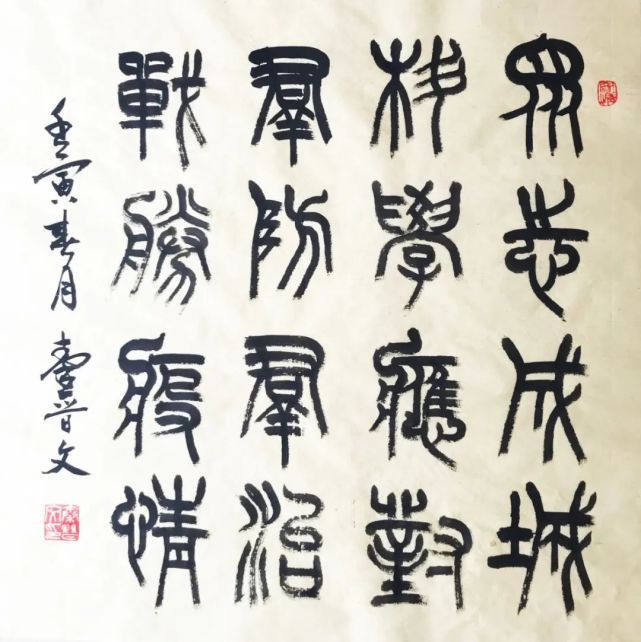 眾志成城
科學應對
羣防羣治
戰勝疫情
壬寅春月 晋文